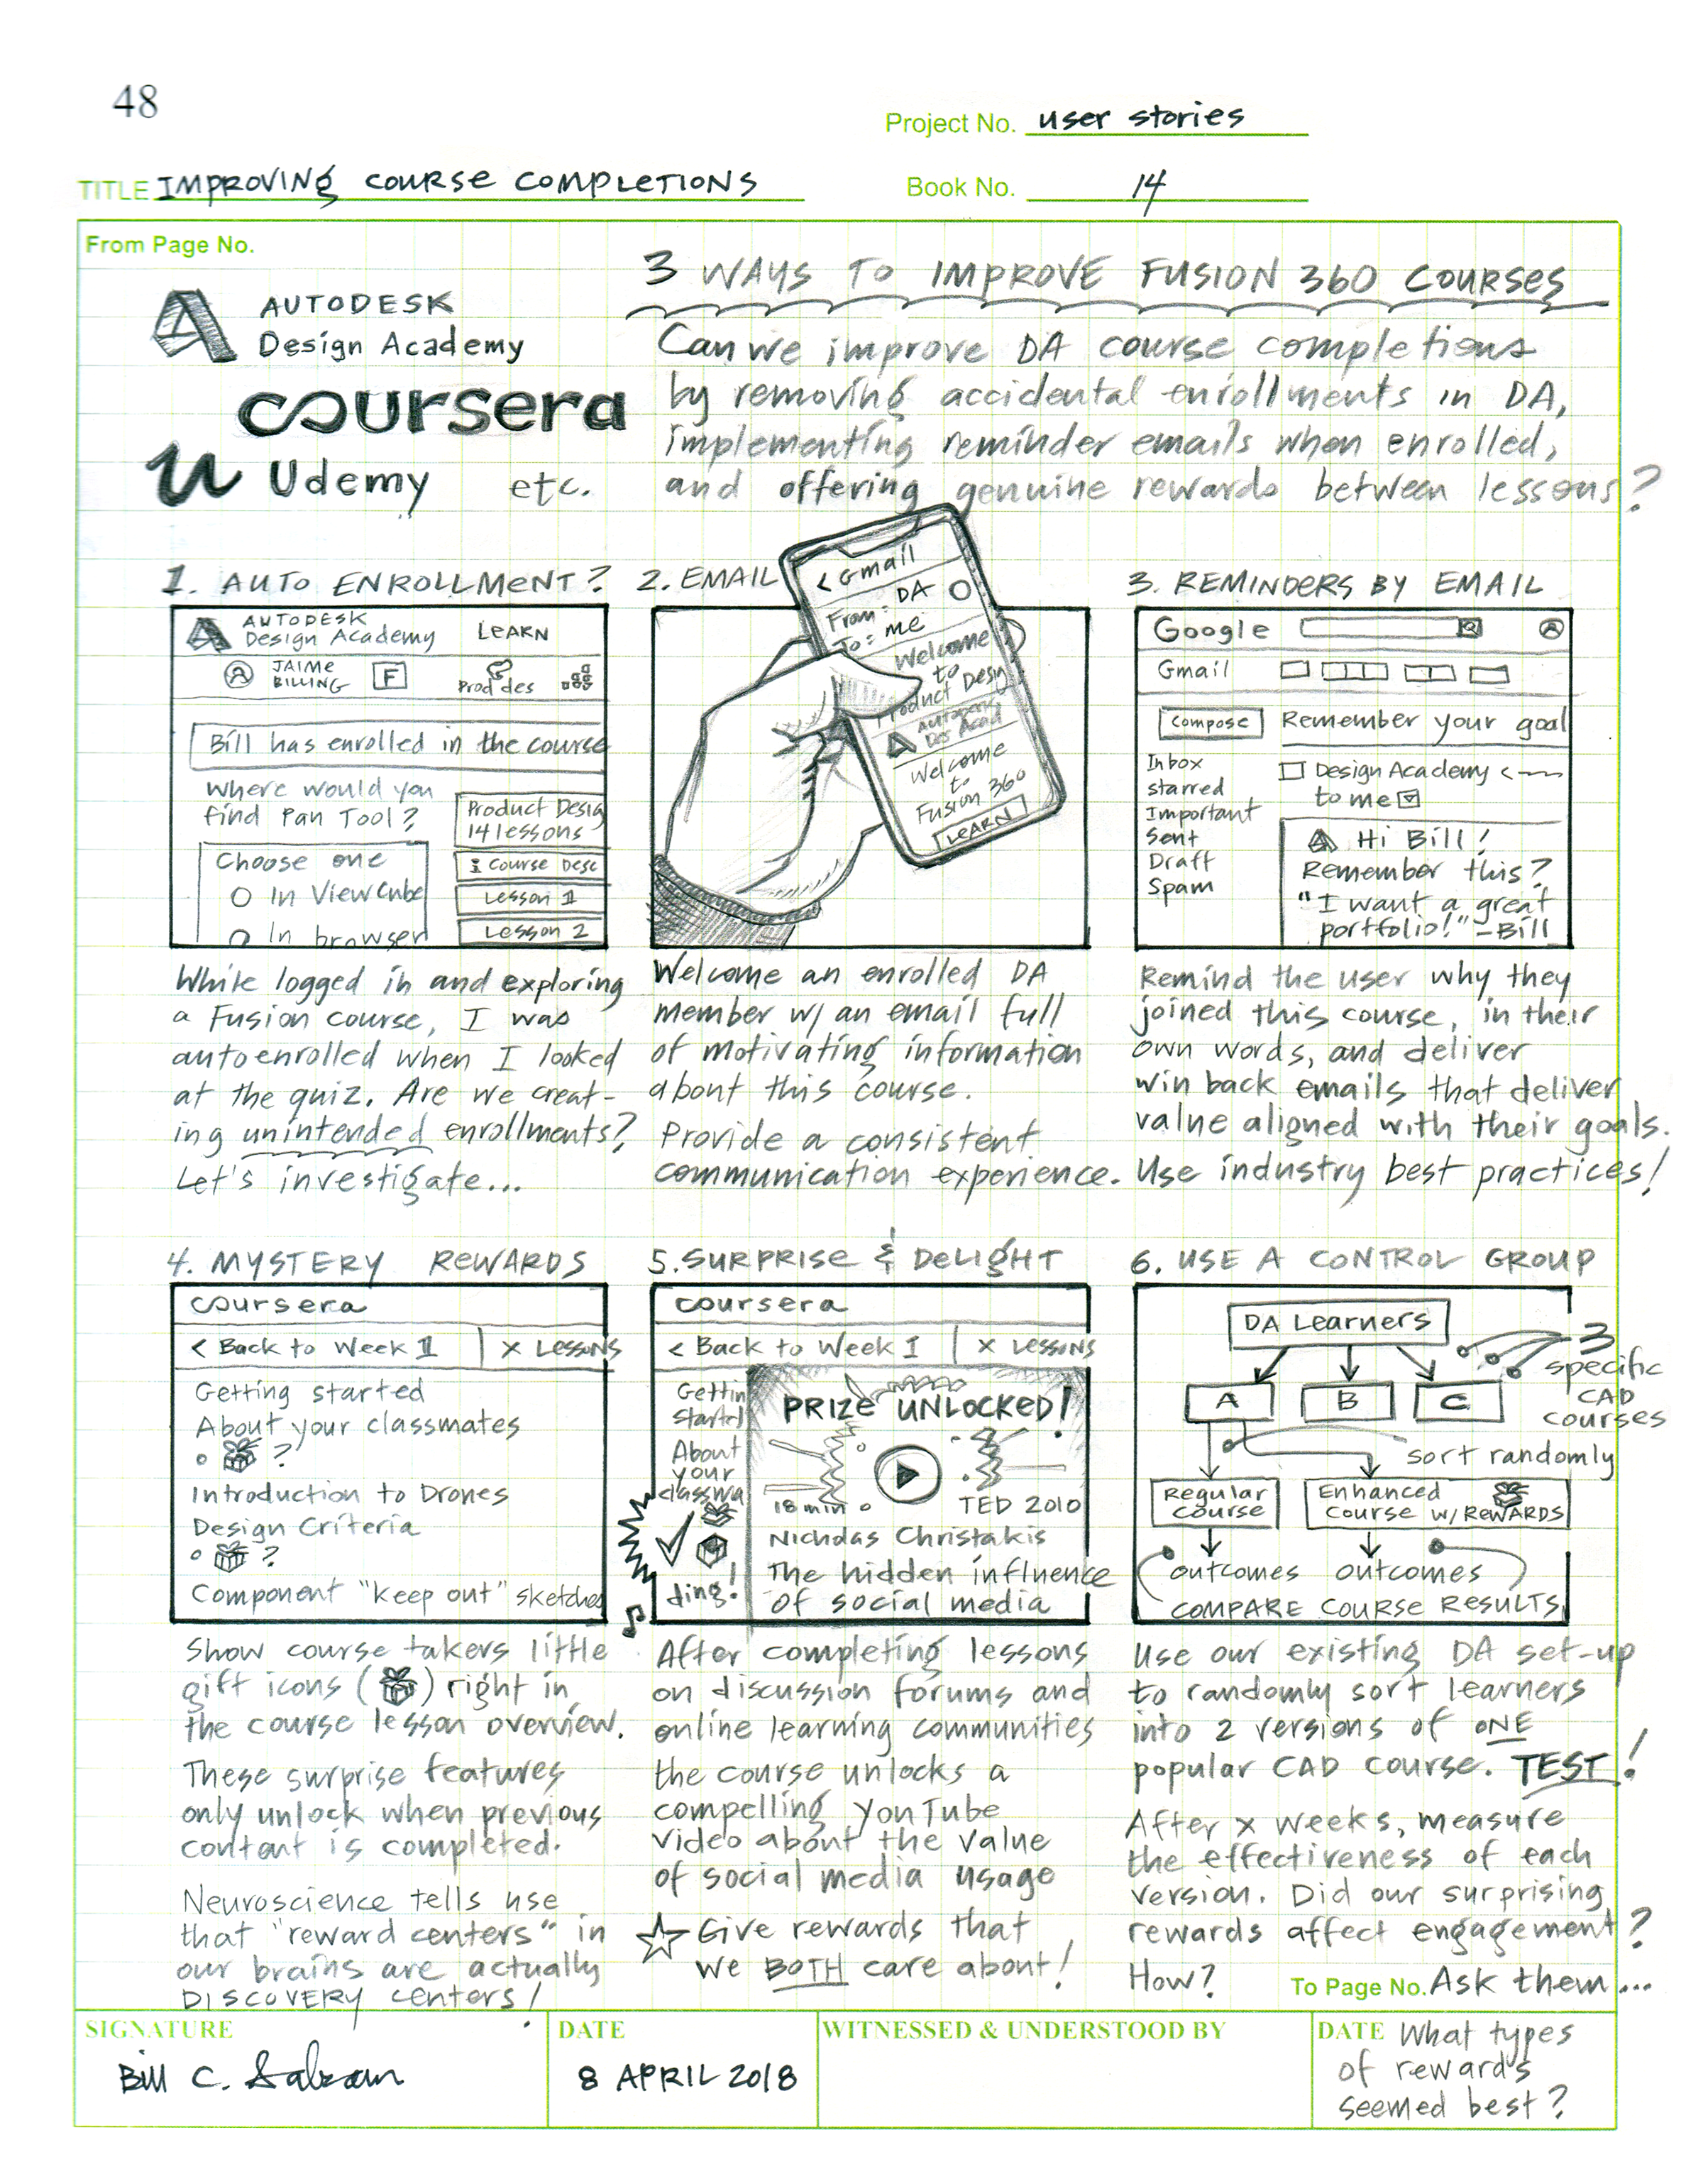 48
Project No. user stories
TITLE IMPROVING COURSE COMPLETIONS
Book No. 14
From Page No.
AUTODESK
Design Academy
coursera
u Udemy etc.
3 WAYS TO IMPROVE FUSION 360 COURSES
Can we improve DA course completions
by removing accidental enrollments in DA,
implementing reminder emails when enrolled,
and offering genuine rewards between lessons?
1. AUTO ENROLLMENT?
AUTODESK
Design Academy LEARN
JAIME
BILLING
F
Prod des
Bill has enrolled in the course
Where would you
find Pan Tool?
Choose one
In ViewCube
In browser
Product Desig
14 lessons
Course Desc
Lesson 1
Lesson 2
While logged in and exploring
a Fusion course, I was
autoenrolled when I looked
at the quiz. Are we creat-
ing unintended enrollments?
Let's investigate...
2. EMAIL
< Gmail
From: DA
To: me
Welcome
to
Product Design
Autodesk
Des Acad
Welcome
to
Fusion 360
LEARN
Welcome an enrolled DA
member w/ an email full
of motivating information
about this course.
Provide a consistent
communication experience.
3. REMINDERS BY EMAIL
Google
Gmail
Compose
Remember your goal
Inbox
starred
Important
Sent
Draft
Spam
Design Academy <
to me
Hi Bill!
Remember this?
"I want a great
portfolio!" -Bill
Remind the user why they
joined this course, in their
own words, and deliver
win back emails that deliver
value aligned with their goals.
Use industry best practices!
4. MYSTERY REWARDS
coursera
< Back to Week 1 | x LESSONS
Getting started
About your classmates
?
Introduction to Drones
Design Criteria
?
Component "keep out" sketches
Show course takers little
gift icons ( ) right in
the course lesson overview.
These surprise features
only unlock when previous
content is completed.
Neuroscience tells use
that "reward centers" in
our brains are actually
DISCOVERY centers!
5. SURPRISE & DELIGHT
coursera
< Back to Week 1 | x LESSONS
Gettin
started
About
your
classma
ding!
PRIZE UNLOCKED!
18 min. TED 2010
Nicholas Christakis
The hidden influence
of social media
After completing lessons
on discussion forums and
online learning communities
the course unlocks a
compelling YouTube
video about the value
of social media usage
Give rewards that
we BOTH care about!
6. USE A CONTROL GROUP
DA Learners
3
specific
CAD
courses
A B C
sort randomly
Regular
Course
Enhanced
Course w/ REWARDS
outcomes outcomes
COMPARE COURSE RESULTS
Use our existing DA set-up
to randomly sort learners
into 2 versions of ONE
popular CAD course. TEST!
After x weeks, measure
the effectiveness of each
version. Did our surprising
rewards affect engagement?
How?
To Page No. Ask them...
SIGNATURE
Bill C.
DATE
8 APRIL 2018
WITNESSED & UNDERSTOOD BY
DATE What types
of rewards
seemed best?